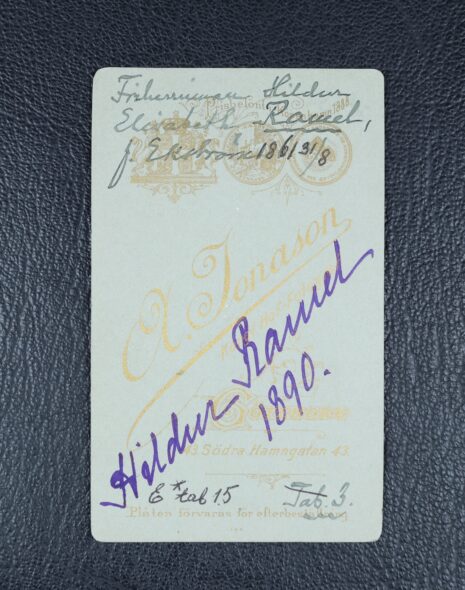 Friherrinnan Hildur
Prisbelönt
1888
Elisabeth Ramel,
f. Ekström 1861 31/8
A. Jonason
Hildur Ramel
1890.
43 Södra Hamngatan 43.
E* tab 15. Tab. 3.
Plåten förvaras för efterbeställning